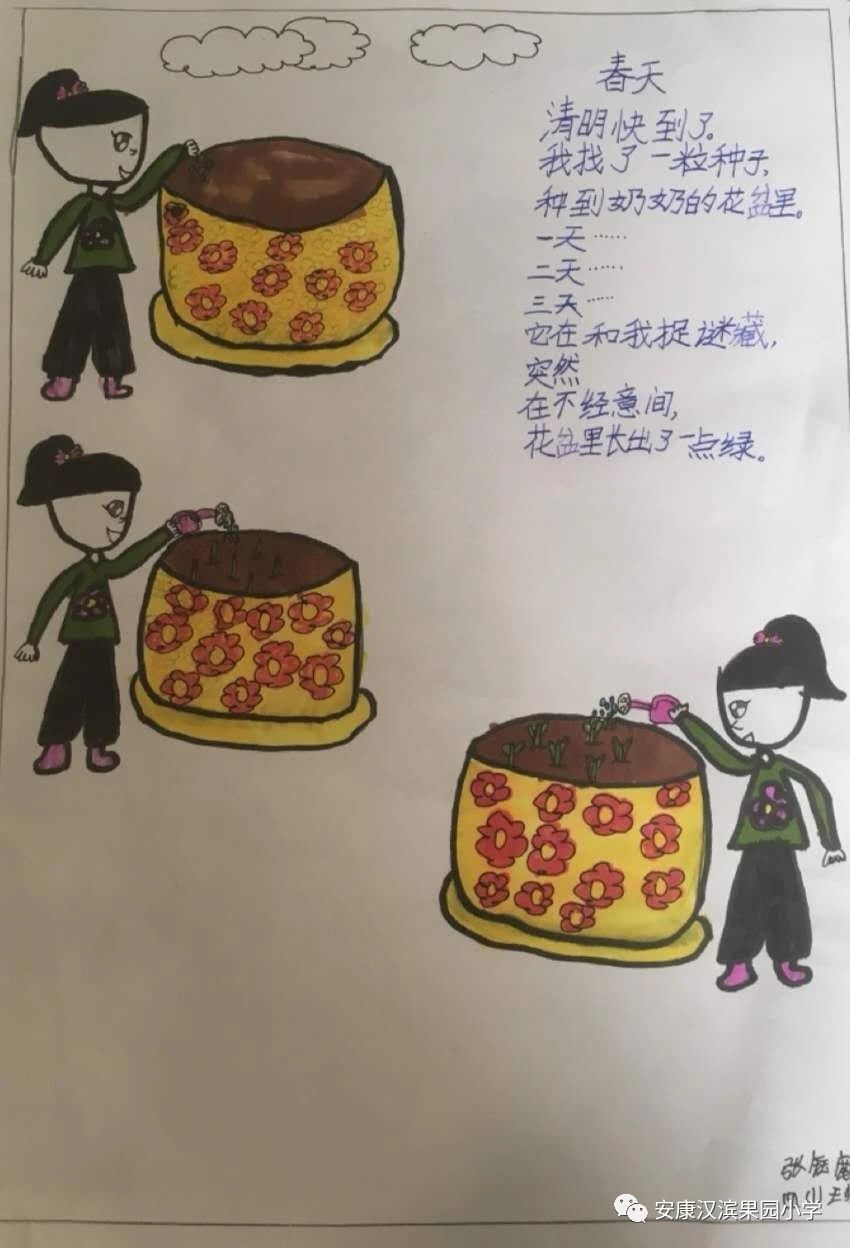 春天
清明快到了。
我找了一粒种子、
种到奶奶的花盆里。
一天……
二天……
三天……
它在和我捉谜藏，
突然
在不经意间，
花盆里长出了一点绿。
张
安康汉滨果园小学